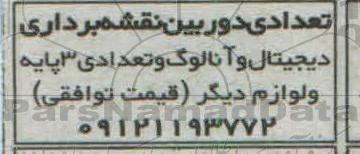 تعدادی دوربین نقشه برداری
دیجیتال و آنالوگ و تعدادی ۳پایه
ولوازم دیگر (قیمت توافقی)
۰۹۱۲۱۱۹۳۷۷۲
ParsNamadData